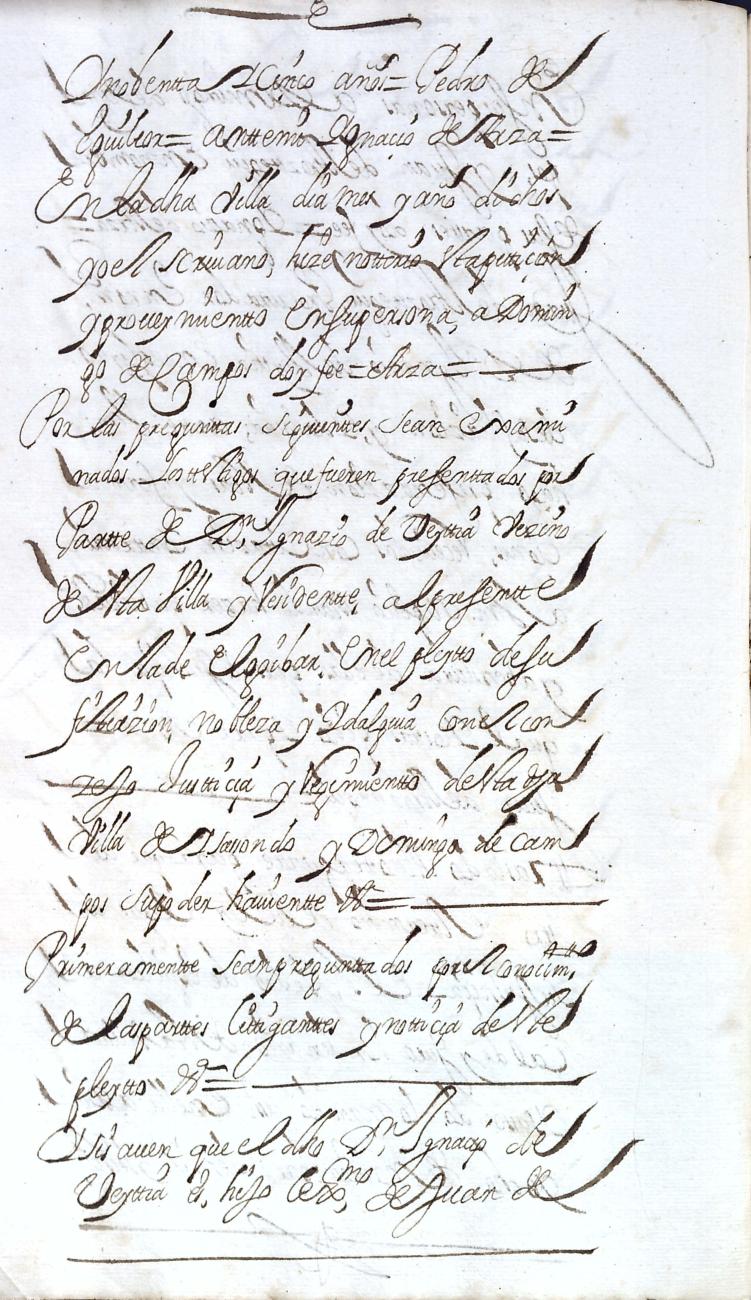 Y nobentta Y Cinco años = Pedro de
Eguileor = anttemi Ygnaçio de Arza =
En la dha Villa dia mes y año dichos
yo el Scriuano, hize nottorio esta petiçion
y proueymientto En supersona, a Domin
go de Campos doy fee = Arza =
Por las preguntas siguienttes sean Exami
nados Los tteStigos que fueren presenttados por
Partte de Dn Ygnazio de Verttia Vezino
de esta Villa y Residentte, al presentte
En la de Elgoibar, En el pleytto de su
filiazion, nobleza y Ydalguia Con el Con
zejo Justiçia y Regimientto de esta dha
Villa de y Domingo de Cam
pos su poder hauientte &a =
Primeramentte sean preguntados por el Conoçimtto
de las parttes Litiganttes y nottiçia de este
pleytto &a =
Y si sauen que el dho Dn Ygnaçio de
Verttia es, hijo lexmo, de Juan de